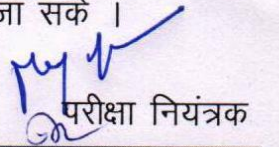 जा सके ।
परीक्षा नियंत्रक